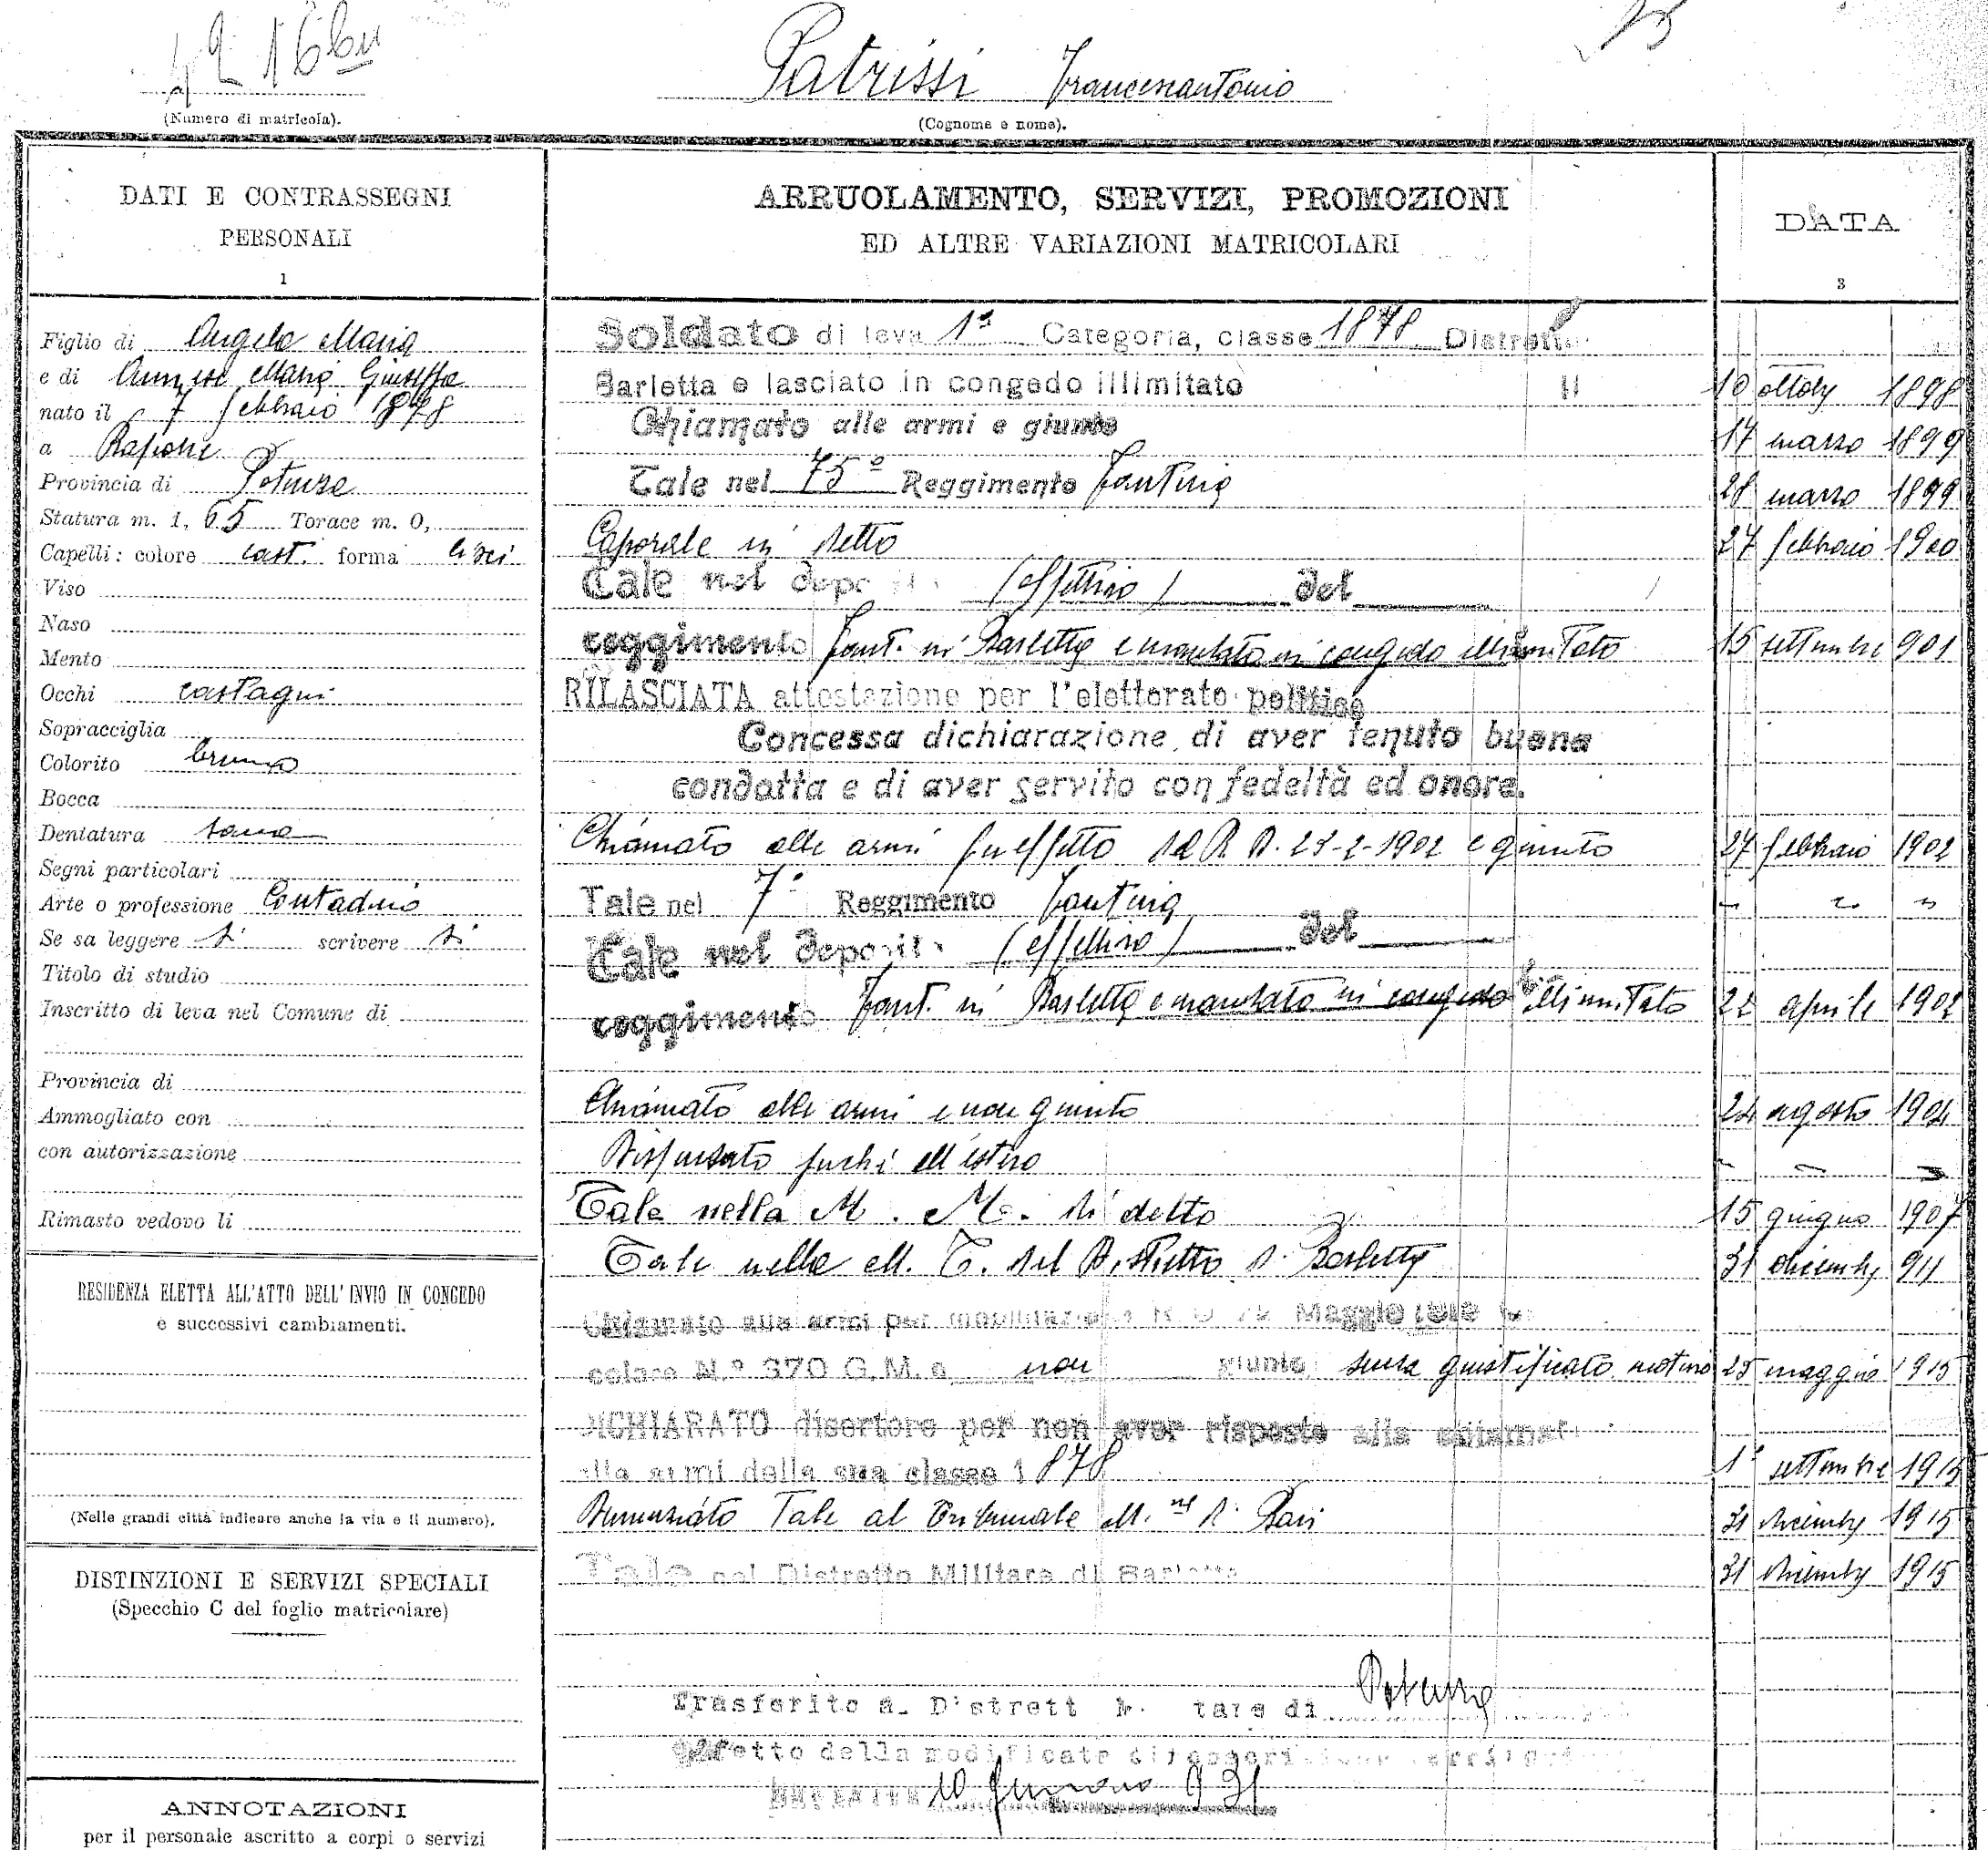 Patrissi Francescantonio
(Numero di matricola).
(Cognome e nome).
DATI E CONTRASSEGNI
PERSONALI
1
Figlio di Angelo Maria
e di Maria Giuseppa
nato il 7 febbraio 1878
a Rapone
Provincia di Potenza
Statura m. 1, 65 Torace m. 0,
Capelli: colore cast. forma lisci
Viso
Naso
Mento
Occhi castagni
Sopracciglia
Colorito bruno
Bocca
Dentatura sana
Segni particolari
Arte o professione Contadino
Se sa leggere si scrivere si
Titolo di studio
Inscritto di leva nel Comune di
Provincia di
Ammogliato con
con autorizzazione
Rimasto vedovo li
RESIDENZA ELETTA ALL'ATTO DELL'INVIO IN CONGEDO
e successivi cambiamenti.
(Nelle grandi città indicare anche la via e il numero).
DISTINZIONI E SERVIZI SPECIALI
(Specchio C del foglio matricolare)
ANNOTAZIONI
per il personale ascritto a corpi o servizi
ARRUOLAMENTO, SERVIZI, PROMOZIONI
ED ALTRE VARIAZIONI MATRICOLARI
DATA
3
Soldato di leva 1ª Categoria, classe 1878 Distretto
Barletta e lasciato in congedo illimitato 10 ottobre 1898
Chiamato alle armi e giunto 17 marzo 1899
Tale nel 75º Reggimento fanteria 28 marzo 1899
Caporale in detto 27 febbraio 1900
Tale nel deposito (effettivo) del
reggimento fant. in Barletta e mandato in congedo illimitato 15 settembre 901
RILASCIATA attestazione per l'elettorato politico
Concessa dichiarazione di aver tenuto buona
condotta e di aver servito con fedeltà ed onore.
Chiamato alle armi per effetto del R. D. 23-2-1902 e giunto 27 febbraio 1902
Tale nel 7º Reggimento fanteria
Tale nel deposito (effettivo) del
reggimento fant. in Barletta e mandato in congedo illimitato 22 aprile 1902
Chiamato alle armi e non giunto 24 agosto 1904
Dispensato perchè all'estero
Tale nella M. M. di detto 15 giugno 1907
Tale nella M. T. del Distretto di Barletta 31 dicembre 911
Chiamato alle armi per mobilitazione R D 22 Maggio 1915
colare N.º 370 G. M. e non giunto senza giustificato motivo 25 maggio 1915
DICHIARATO disertore per non aver risposto alla chiamata
alle armi della sua classe 1878 1º settembre 1915
Denunziato Tale al Tribunale M.re di Bari 31 dicembre 1915
Tale nel Distretto Militare di Barletta 31 dicembre 1915
Trasferito al Distretto Militare di Potenza
effetto della modificata
10 gennaio 931